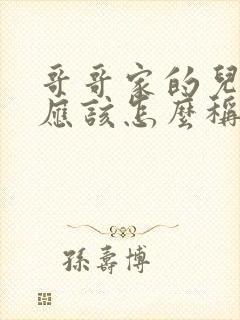 哥哥家的兒
應該怎麼稱
孫壽博